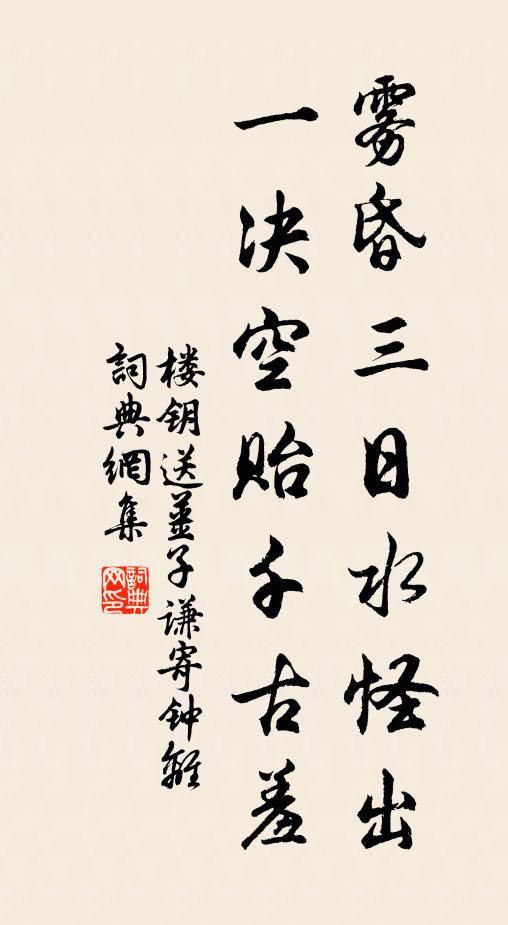 雾昏三日水怪出
一决空贻千古羞
楼钥送姜子谦寄钟离
詞典網集
詞典網印